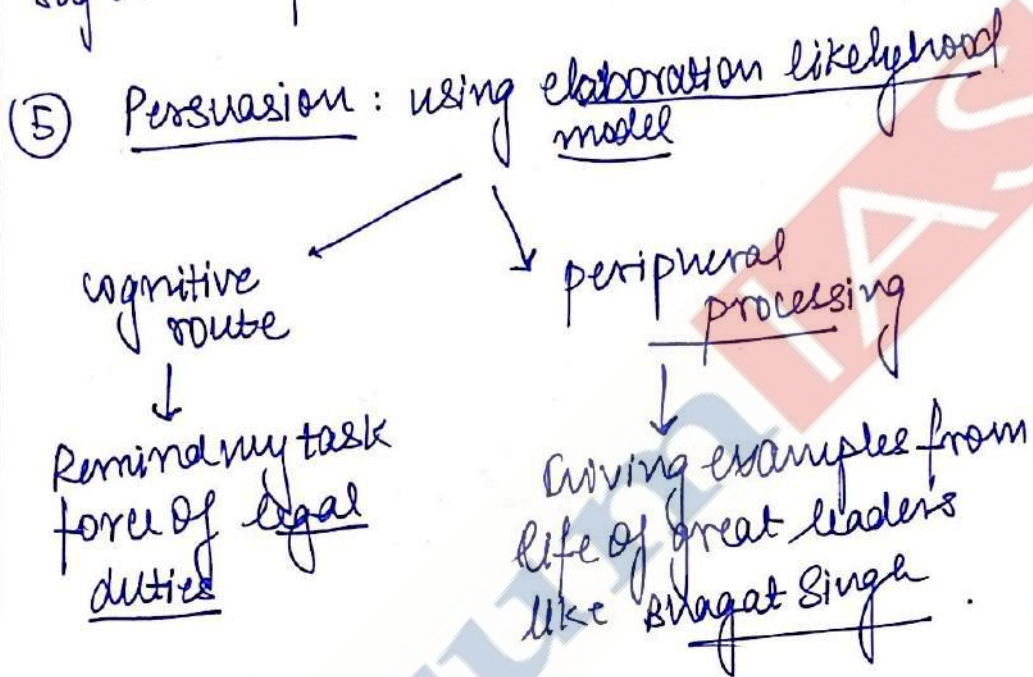 ⑤ Persuasion : using elaboration likelyhood
model
cognitive
route
Remind my task
force of legal
duties
peripheral
processing
Giving examples from
life of great leaders
like Bhagat Singh .
IAS
um